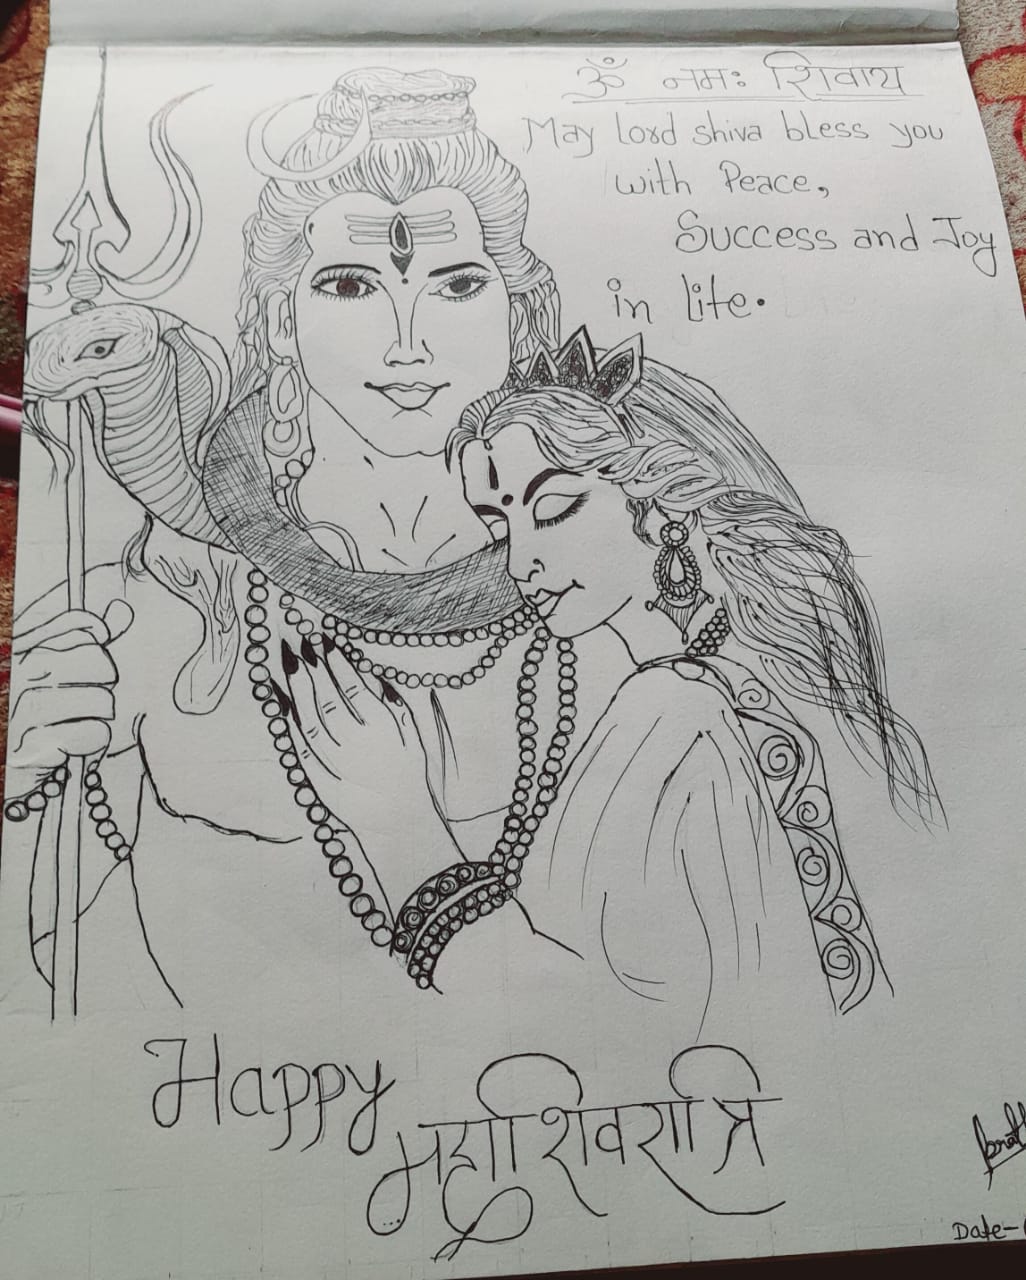 ॐ नमः शिवाय
May lord shiva bless you
with Peace,
Success and Joy
in life.
Happy
महाशिवरात्रि
Date-